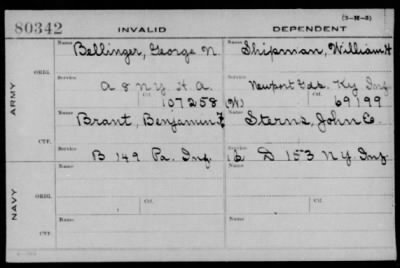 (3-M-3)
80342 INVALID DEPENDENT
Name Bellinger, George N. Name Shipman, William H
ORIG.
Service A 8 N.Y. H.A. Service Newport Gds. Ky Inf.
Ctf. 107258 (W) Ctf. 69199
ARMY
Name Brant, Benjamin F Name Sterns, John E.
CTF.
Service B 149 Pa. Inf. Service D 153 N.Y. Inf.
Name Name
ORIG.
Service Ctf. Service Ctf.
NAVY
Name Name
CTF.
Service Service